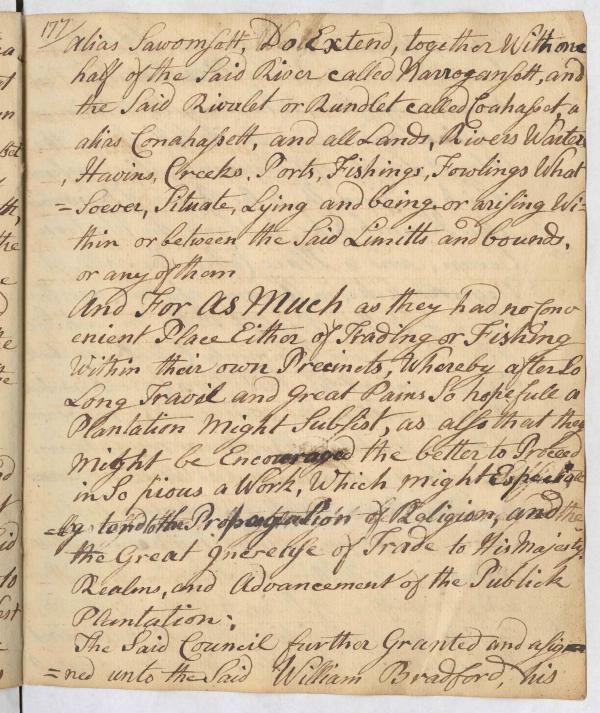 177/
alias Sawomsett, Do Extend, together With one
half of the Said River called Narrogansett, and
the Said Rivulet or Rundlet called Coahasset, a
alias Conahassett, and all Lands, Rivers Waters
, Havins, Creeks, Ports, Fishings, Fowlings What
=Soever, Situate, Lying and being or arising Wi-
thin or between the Said Limitts and bounds,
or any of them
And For As Much as they had no Conv
enient Place Either of Trading or Fishing
Within their own Precincts, Whereby after So
Long Travil and Great Pains So hopefull a
Plantation Might Subsist, as also that they
Might be Encouraged the better to Proceed
in So pious a Work, Which might Especiall
=ly tend to the Propagation of Religion, and the
the Great Increase of Trade to His Majestys
Realms, and Advancement of the Publick
Plantation:
The Said Council further Granted and asig=
=ned unto the Said William Bradford, his